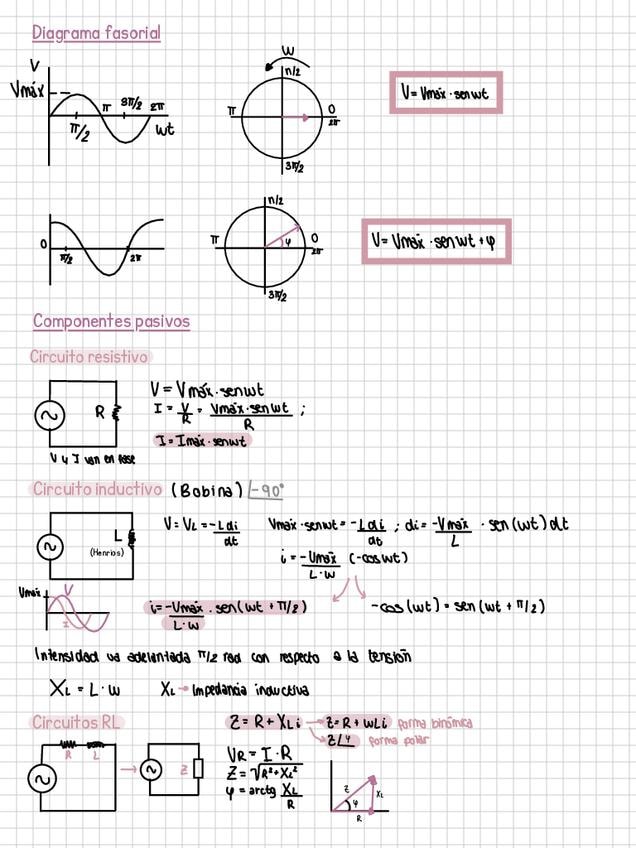 Diagrama fasorial
V
Vmáx
π/2 π 3π/2 2π wt
w
π/2
π 0
2π
3π/2
V = Vmáx · sen wt
0 π/2 2π
π/2
π φ 0
2π
3π/2
V = Vmáx · sen wt + φ
Componentes pasivos
Circuito resistivo
R
V = Vmáx · sen wt
I = V/R = Vmáx · sen wt / R ;
I = Imáx · sen wt
V y I van en fase
Circuito inductivo (Bobina) |-90°
L
(Henrios)
V = VL = -L di/dt Vmax · sen wt = -L di/dt ; di = -Vmax/L · sen (wt) dt
i = -Vmax/L·w (-cos wt)
Vmax V
I
i = -Vmax/L·w · sen (wt + π/2) -cos (wt) = sen (wt + π/2)
Intensidad va adelantada π/2 rad con respecto a la tensión
XL = L · w XL → Impedancia inductiva
Circuitos RL
Z = R + XLi → Z = R + wLi forma binómica
Z∠φ forma polar
R L
Z
VR = I · R
Z = √R² + XL²
φ = arctg XL/R
Z XL
φ
R